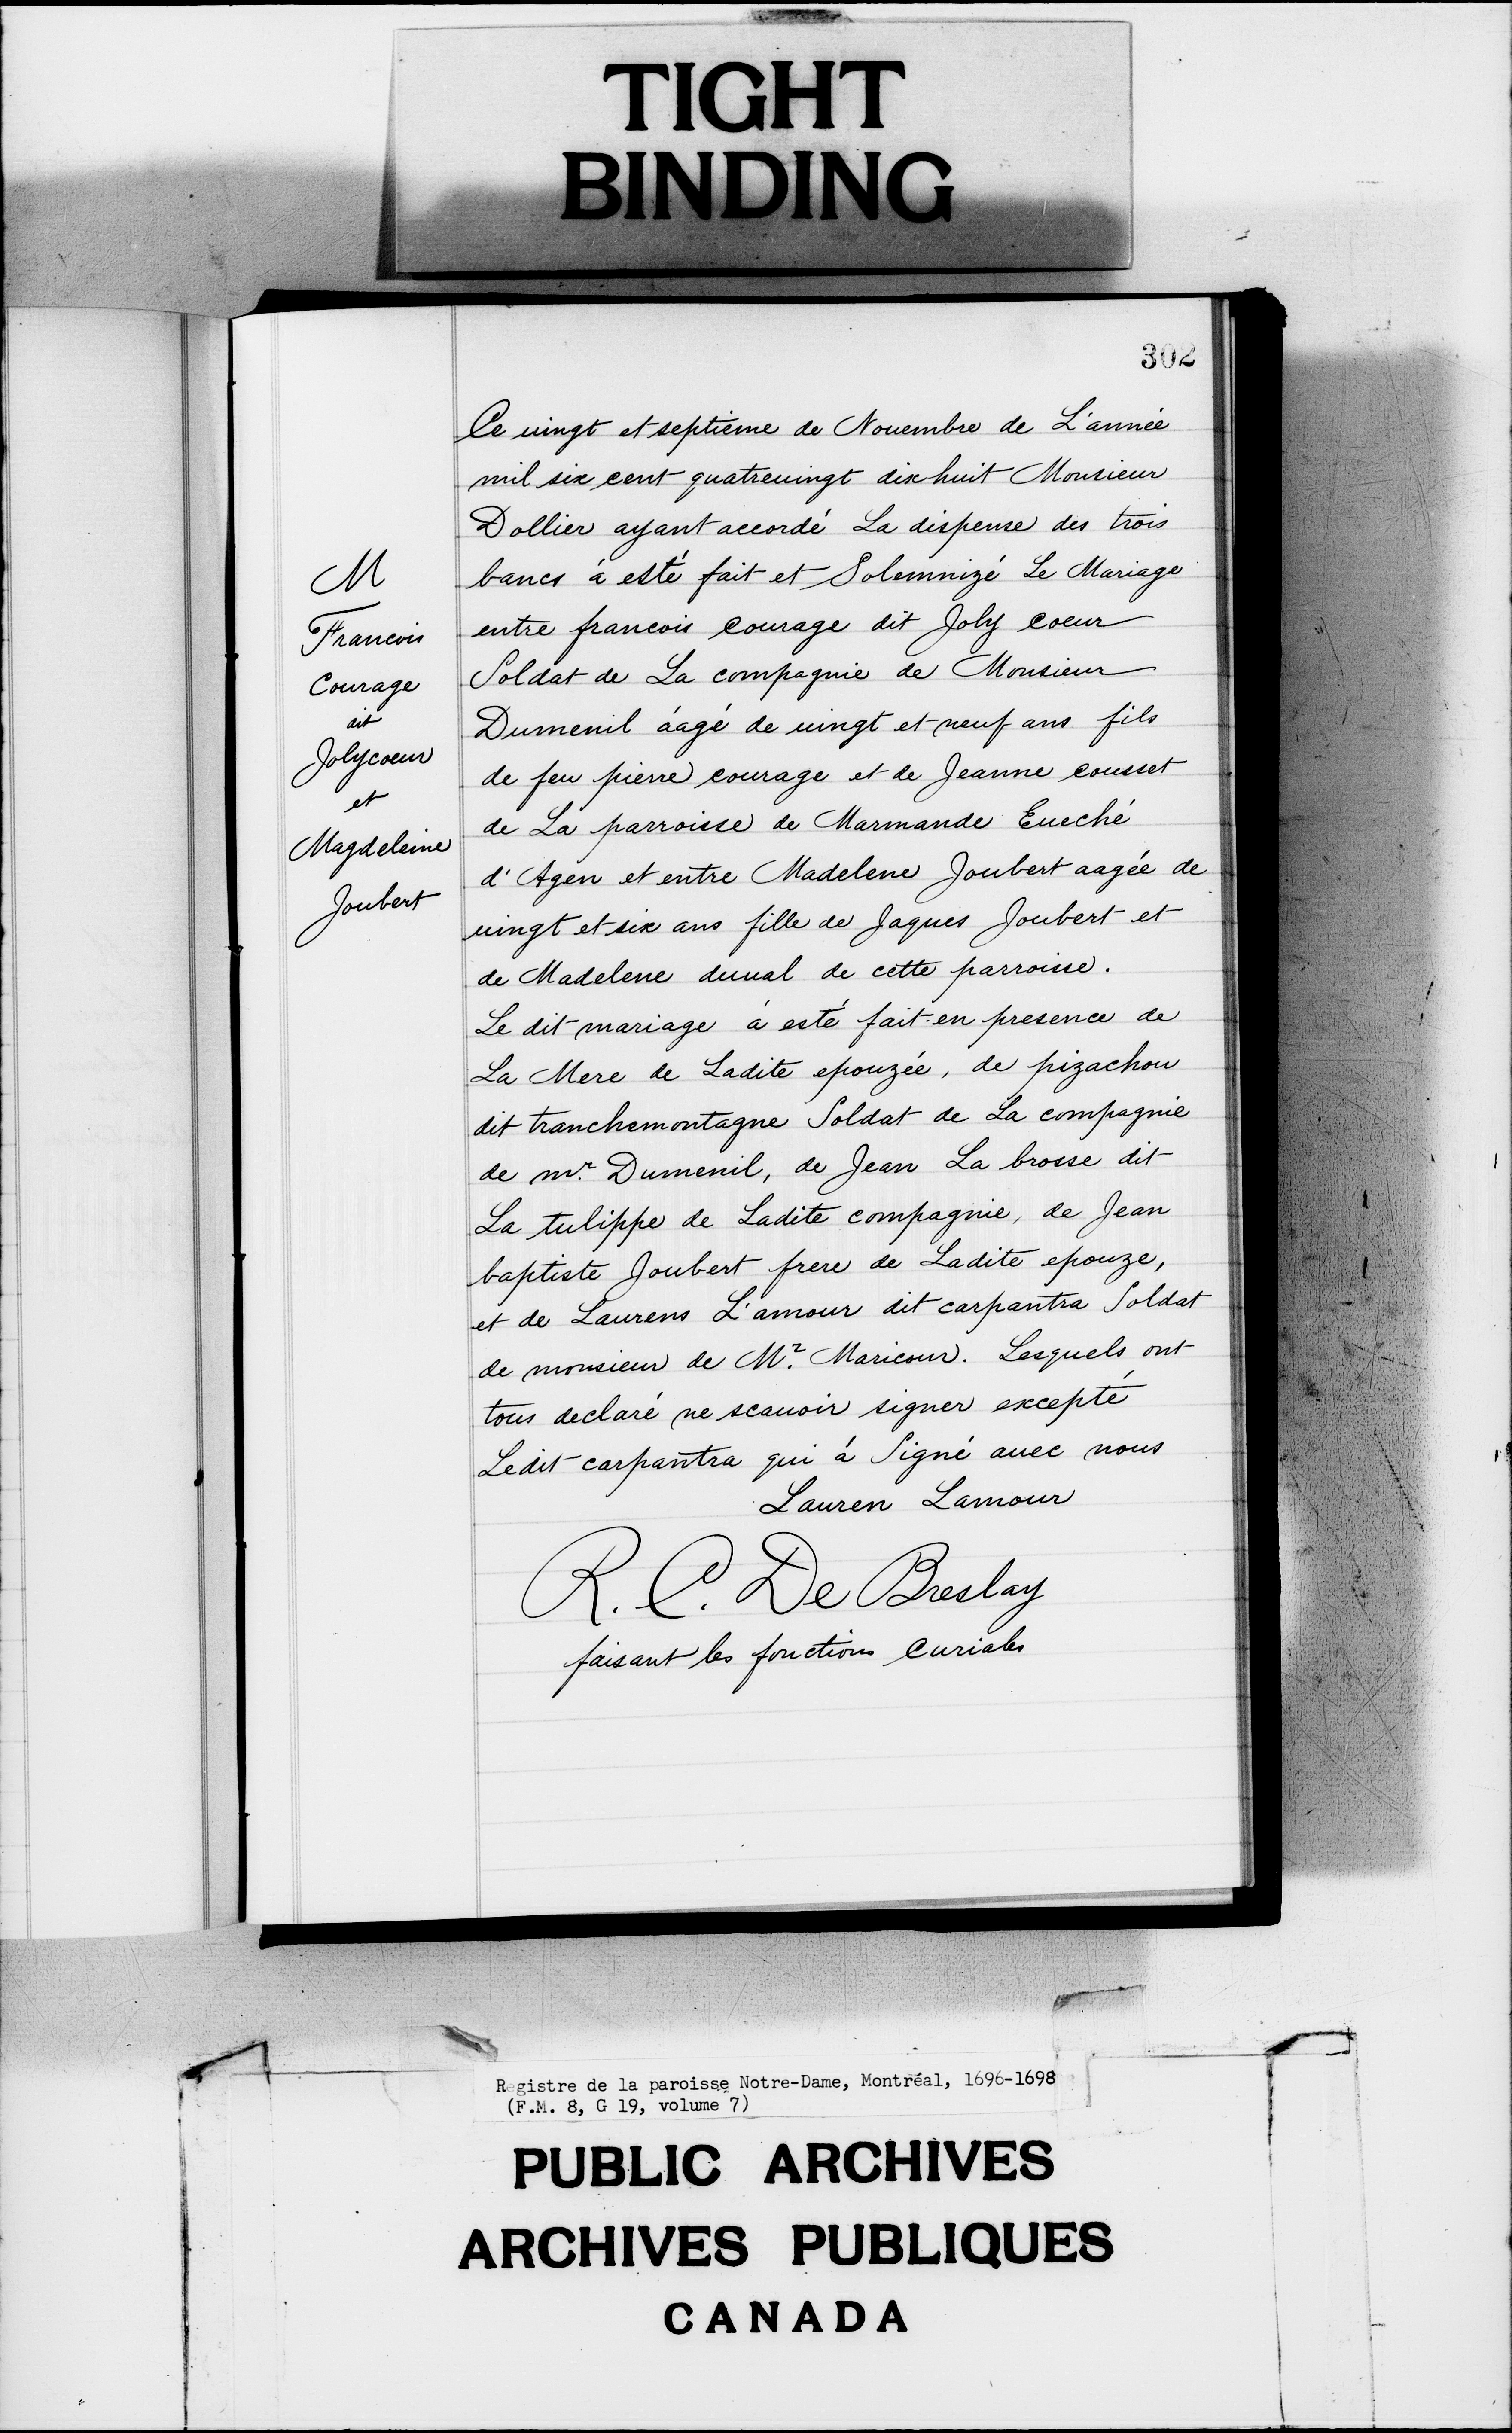 TIGHT
BINDING
302
Ce uingt et septieme de Nouembre de L'année
mil six cent quatreuingt dix huit Monsieur
Dollier ayant accordé La dispense des trois
bancs á esté fait et Solemnizé Le Mariage
entre francois courage dit Joly coeur
Soldat de La compagnie de Monsieur
Dumenil áagé de uingt et neuf ans fils
de feu pierre courage et de Jeanne cousset
de La parroisse de Marmande Eueché
d'Agen et entre Madelene Joubert aagée de
uingt et six ans fille de Jaques Joubert et
de Madelene duual de cette parroisse.
Le dit mariage á esté fait en presence de
La Mere de Ladite epouzée, de pizachou
dit tranchemontagne Soldat de La compagnie
de mr. Dumenil, de Jean La brosse dit
La tulippe de Ladite compagnie, de Jean
baptiste Joubert frere de Ladite epouze,
et de Laurens L'amour dit carpantra Soldat
de monsieur de Mr. Maricour. Lesquels ont
tous declaré ne scauoir signer excepté
Ledit carpantra qui á Signé auec nous
Lauren Lamour
R. C. De Breslay
faisant les fonctions Curiales
M
Francois
Courage
dit
Jolycoeur
et
Magdeleine
Joubert
Registre de la paroisse Notre-Dame, Montréal, 1696-1698
(F.M. 8, G 19, volume 7)
PUBLIC ARCHIVES
ARCHIVES PUBLIQUES
CANADA